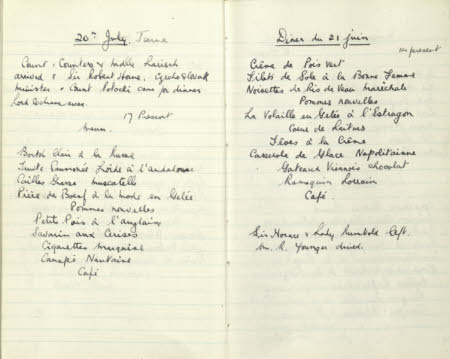 20th July,
Count, Countess & Mdlle Larisch
arrived & Sir Robert Horne, Czecho Slovak
Minister & Count Potocki came for dinner
Lord Cochrane away.
17 Present
Menu.
Bortsh Clair à la Russe
Truite Saumonée Froide à l'andalouse
Cailles Gusse muscatelle
Pièce de Boeuf à la mode en Gelée
Pommes nouvelles
Petits Pois à l'anglaise
Savarin aux Cerises
Cigarettes
Canapé Nantaise
Café
Diner du 21 juin
14 present
Crème de Pois Vert
Filets de Sole à la Bonne Femme
Noisettes de Ris de Veau maréchale
Pommes nouvelles
La Volaille en Gelée à l'Estragon
Coeur de Laitues
Fèves à la Crème
Casserole de Glace Napolitainne
Gateaux Viennois chocolat
Ramequin Lorrain
Café.
Sir Horace & Lady Rumbold left.
Mr. R. Younger dined.